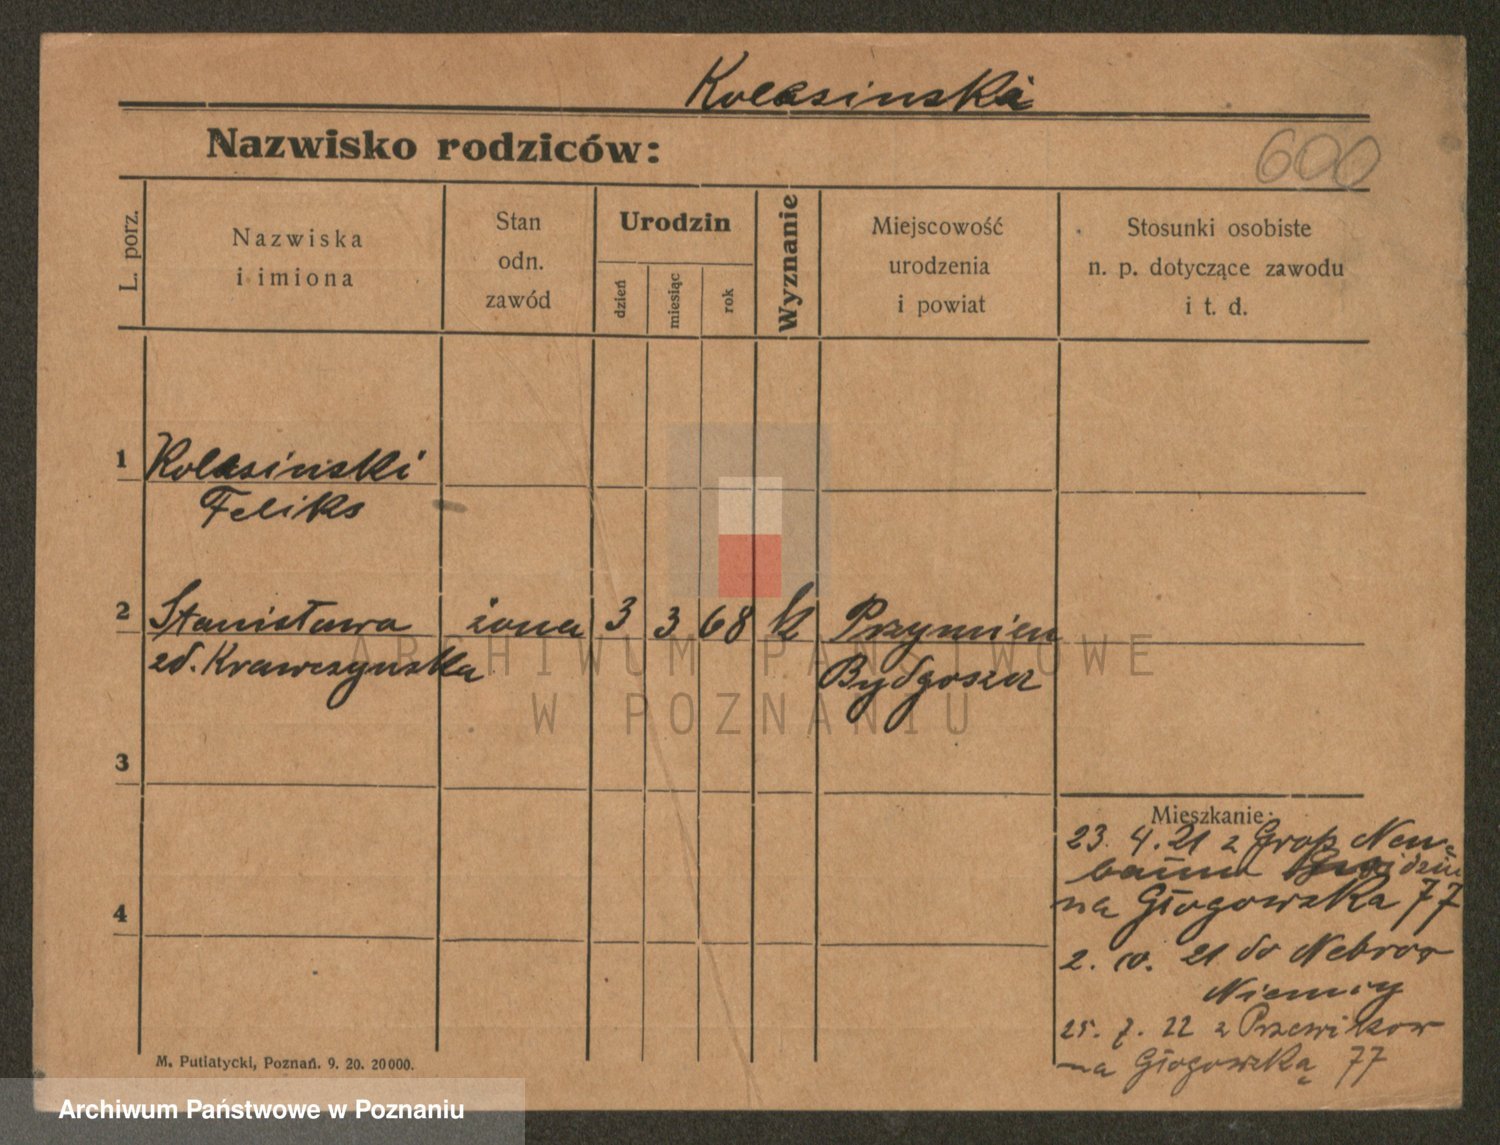 Kolasinska
Nazwisko rodziców:
600
L. porz.
Nazwiska
i imiona
Stan
odn.
zawód
Urodzin
dzień
miesiąc
rok
Wyznanie
Miejscowość
urodzenia
i powiat
Stosunki osobiste
n. p. dotyczące zawodu
i t. d.
1
Kolasinski
Feliks
2
Stanisława żona 3 3 68 k Przymien
zd. Krawczynska Bydgoszcz
3
4
Mieszkanie:
23. 4. 21 z Grop Neu-
baum
na Głogowska 77
2. 10. 21 do
Niemcy
25. 7. 22 z
na Głogowską 77
M. Putiatycki, Poznań. 9. 20. 20000.
ARCHIWUM PAŃSTWOWE
W POZNANIU
Archiwum Państwowe w Poznaniu